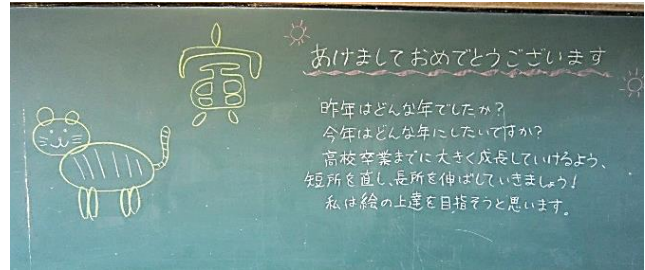 寅
あけましておめでとうございます
昨年はどんな年でしたか?
今年はどんな年にしたいですか?
高校卒業までに大きく成長していけるよう、
短所を直し、長所を伸ばしていきましょう!
私は絵の上達を目指そうと思います。